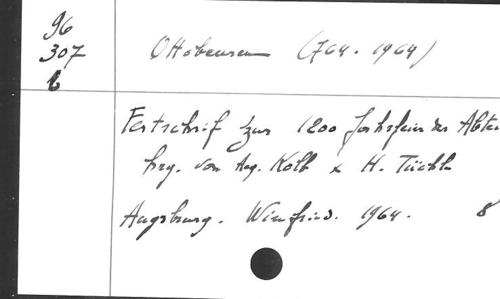 96
307
b
Ottobeuren (764 - 1964)
Festschrif zur 1200 Jahrfeier der Abtei
hrg. von Aeg. Kolb & H. Tüchle
Augsburg. Winfried. 1964. 8